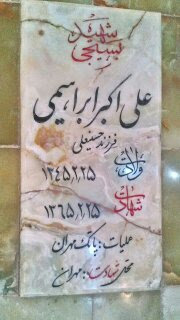 شهید
بسیجی
علی اکبر ابراهیمی
فرزند حسینعلی
ولادت
۱۳۴۵/۲/۲۵
شهادت
۱۳۶۵/۲/۲۵
عملیات: پاتک مهران
محل شهادت: مهران